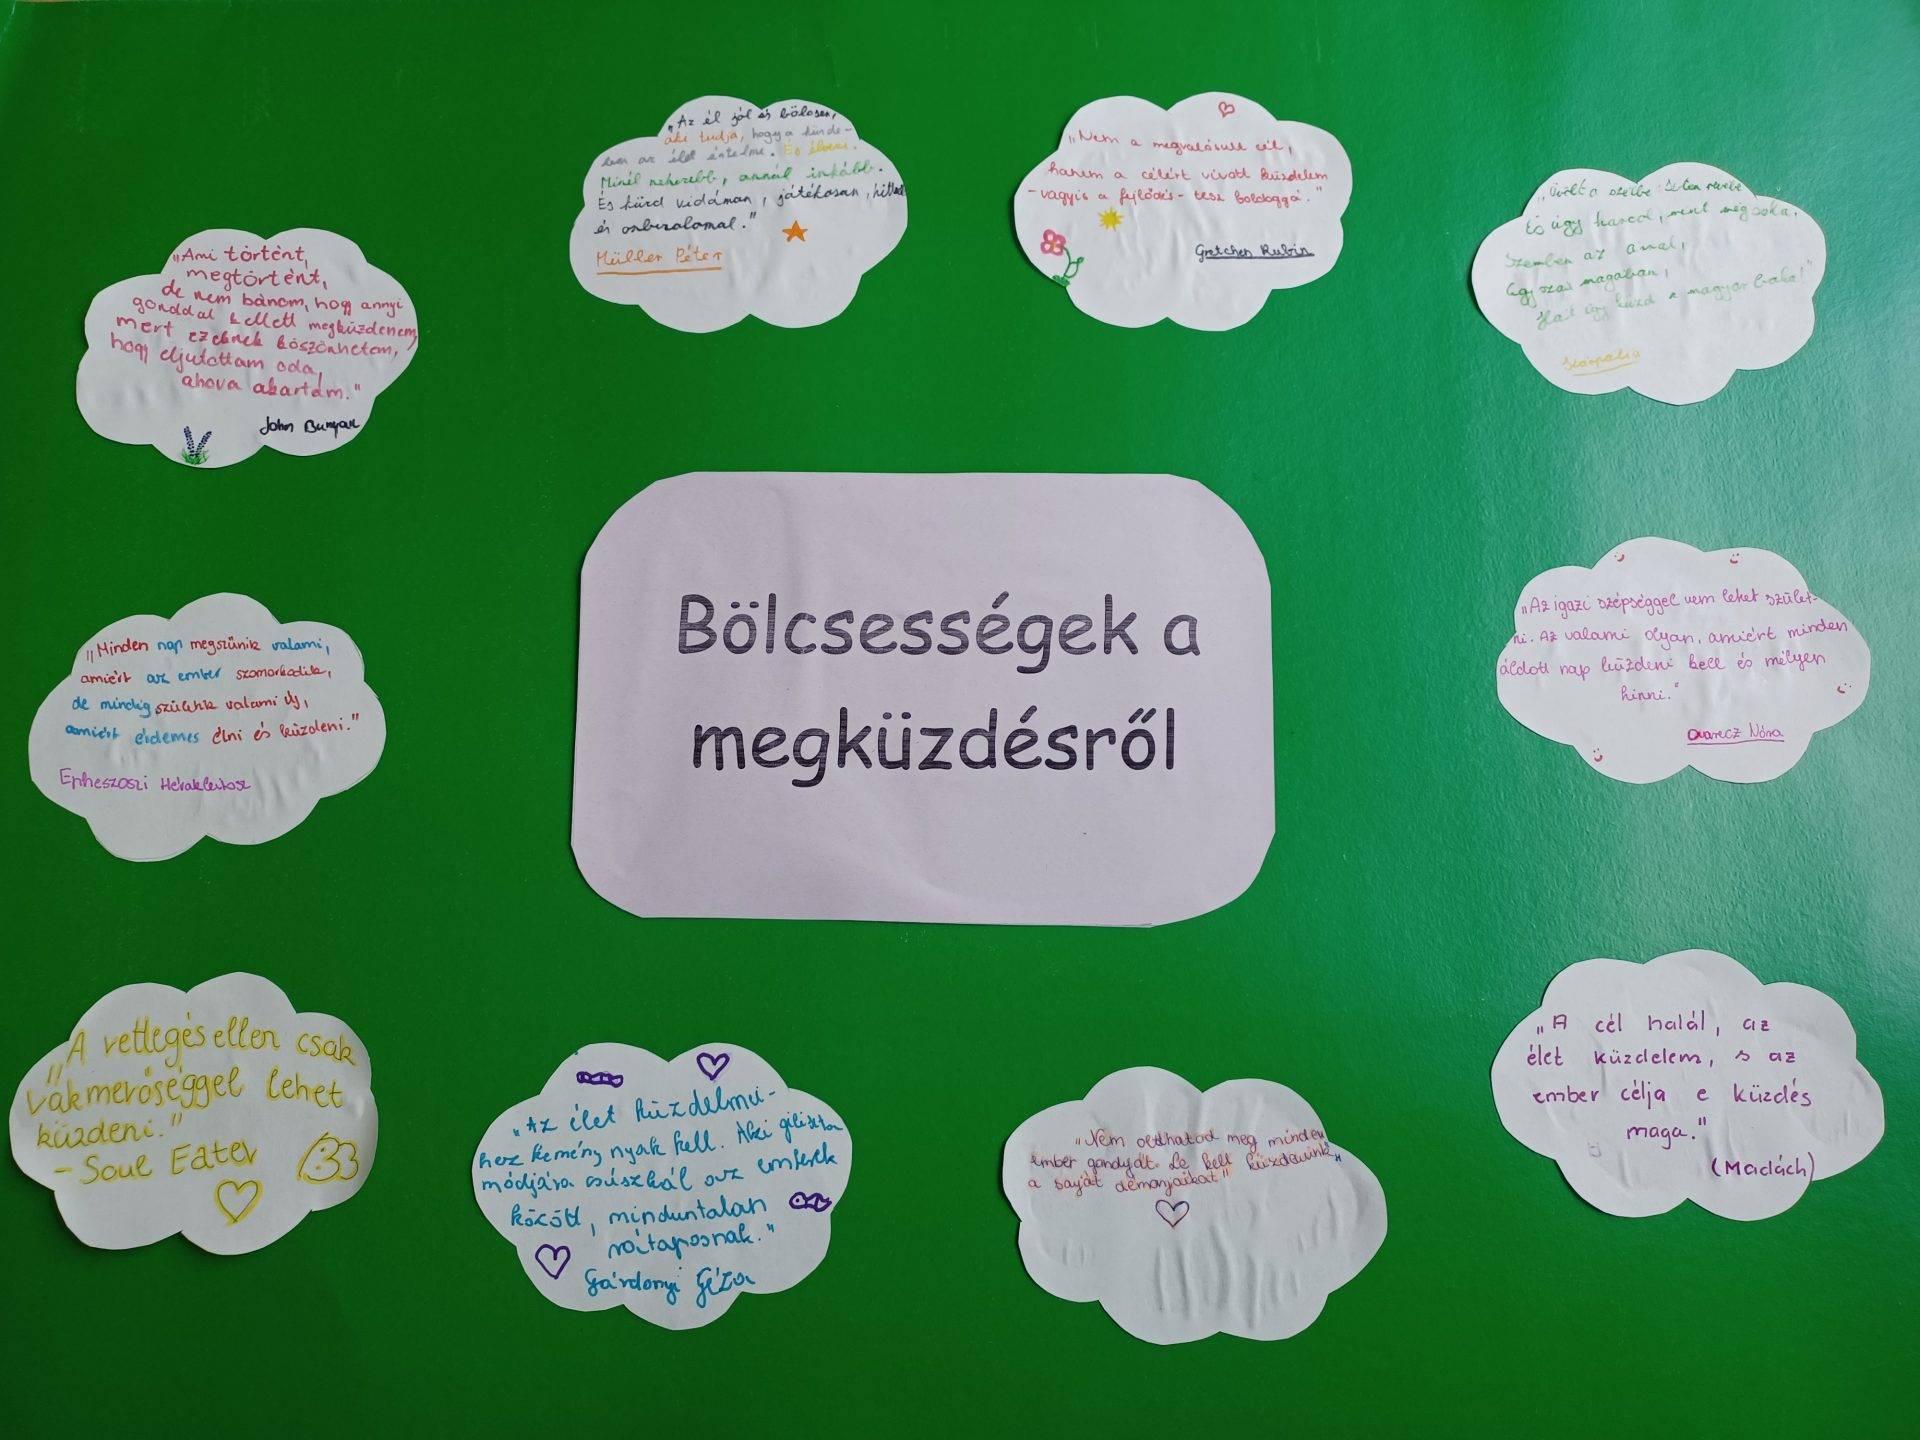 Bölcsességek a
megküzdésről
„Ami történt,
megtörtént,
de nem bánom, hogy annyi
gonddal kellett megküzdenem,
mert ezeknek köszönhetem,
hogy eljutottam oda,
ahova akartam."
John Bunyan
„Az él jól és bölcsen,
aki tudja, hogy a küzde-
lem az élet értelme. És élvezi.
Minél nehezebb, annál inkább.
És küzd vidáman, játékosan, hittel
és önbizalomal."
Müller Péter
„Nem a megvalósult cél,
hanem a célért vívott küzdelem
- vagyis a fejlődés - tesz boldoggá."
Gretchen Rubin
És úgy harcol, mint még soha,
Szemben az
Egy szál magában,
Hát úgy küzd a magyar baka!"
„Minden nap megszűnik valami,
amiért az ember szomorkodik,
de mindig születik valami új,
amiért érdemes élni és küzdeni."
Epheszoszi Hérakleitosz
„Az igazi szépséggel nem lehet szület-
ni. Az valami olyan, amiért minden
áldott nap küzdeni kell és mélyen
hinni."
Nóra
„A rettegés ellen csak
vakmerőséggel lehet
küzdeni."
- Soul Eater
„Az élet küzdelmei-
hez kemény nyak kell. Aki giliszta
módjára csúszkál az emberek
között, minduntalan
rátaposnak."
Gárdonyi Géza
„Nem oldhatod meg minden
ember gondját. Le kell küzdenünk
a saját démonjaikat"
„A cél halál, az
élet küzdelem, s az
ember célja e küzdés
maga."
(Madách)